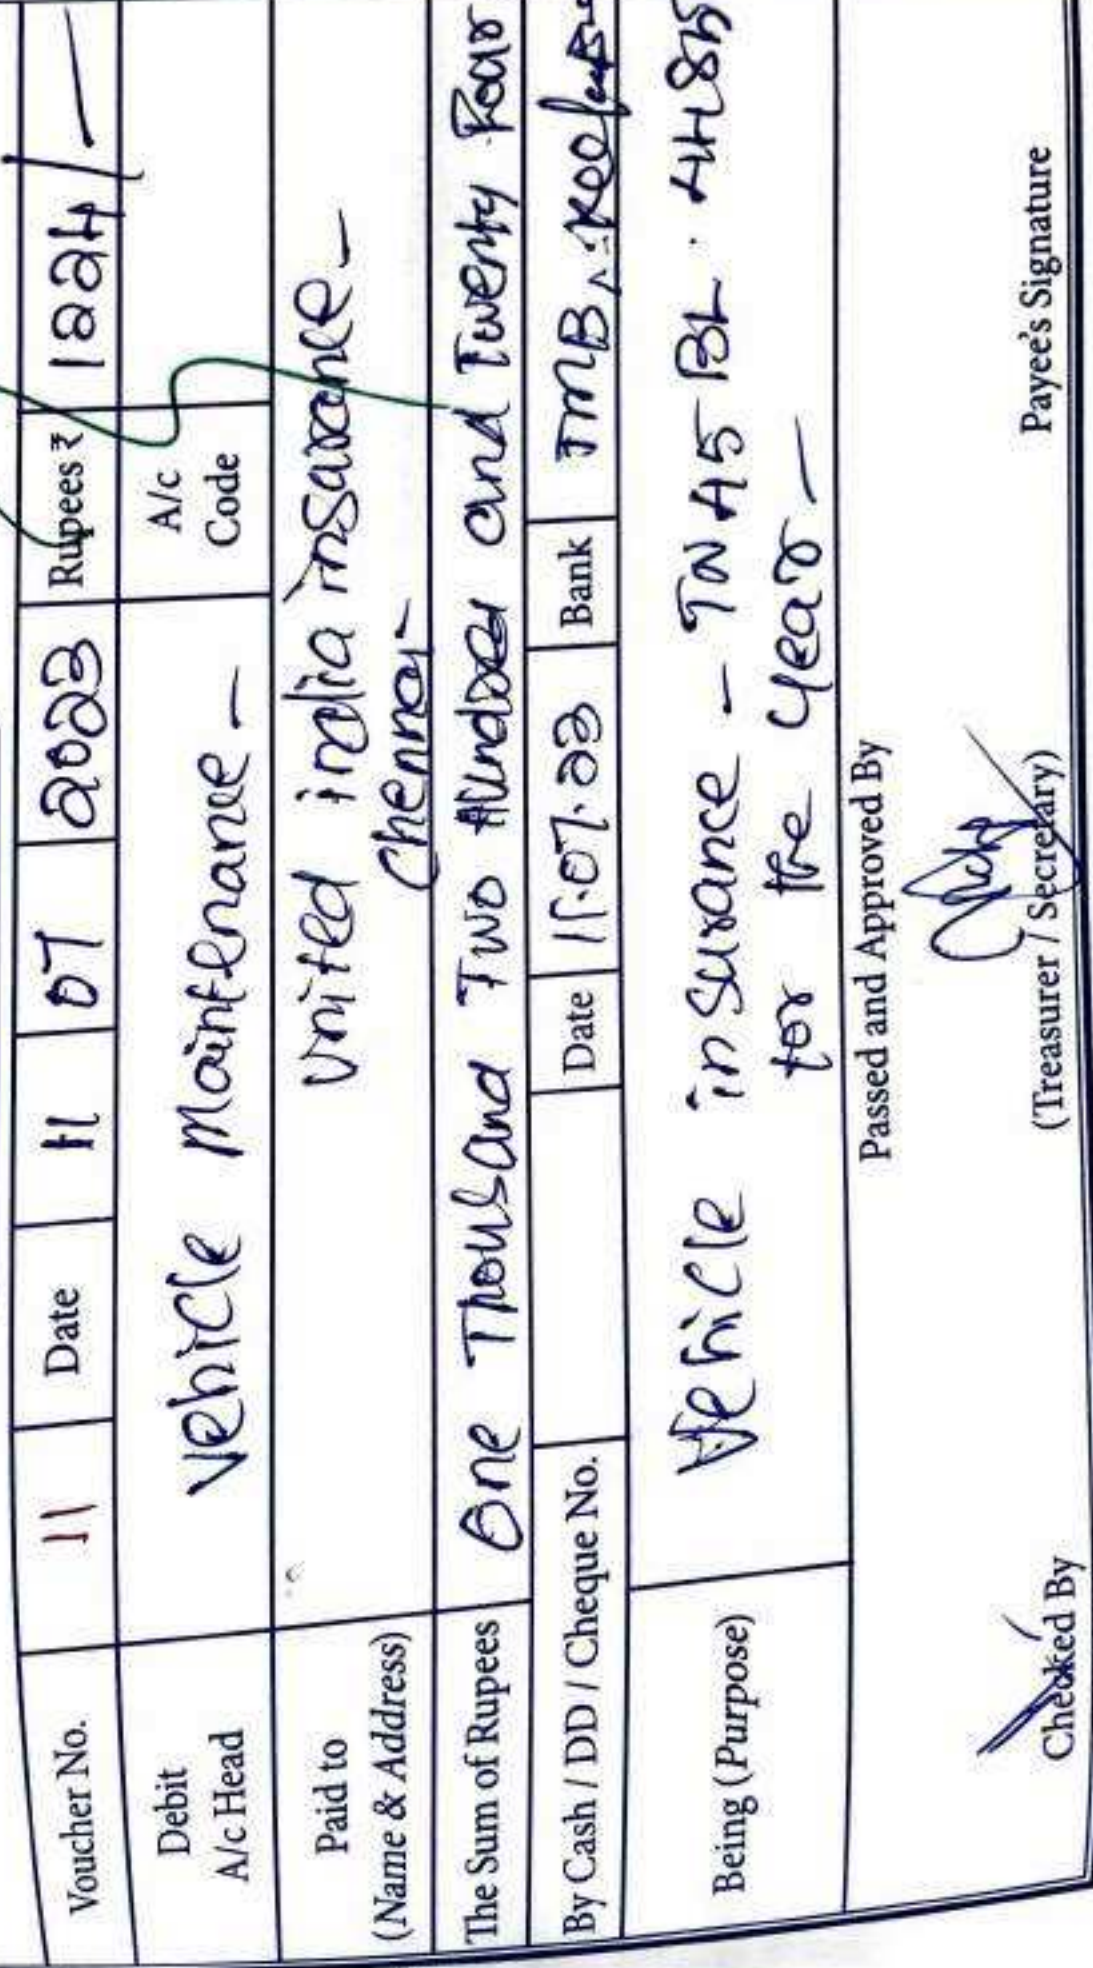 Voucher No. 11 Date 11 07 2023 Rupees ₹ 1224/-
Debit
A/c Head Vehicle Maintenance - A/c
Code
Paid to
(Name & Address) United india insurance -
Chennai-
The Sum of Rupees One Thousand Two Hundred and Twenty Four
By Cash / DD / Cheque No. Date 11.07.23 Bank TMB
Being (Purpose) Vehicle insurance - TN 45 BL
for the year -
Passed and Approved By
Checked By (Treasurer / Secretary) Payee's Signature